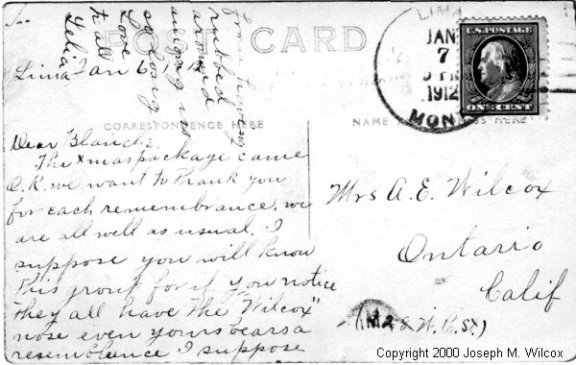 POST CARD
LIMA
JAN
7
1912
MONT
U.S. POSTAGE
ONE CENT
Lima Jan 6, 1912
CORRESPONDENCE HERE
Dear Blanche,
The Xmas package came
O.K. we want to thank you
for each remembrance. we
are all well as usual. I
suppose you will know
this group for if you notice
they all have the "Wilcox"
nose even yours bears a
resemblance I suppose
from having
rubbed
around
among us
so long
Love
to all
Lelia
NAME HERE
Mrs A. E. Wilcox
Ontario
Calif
Copyright 2000 Joseph M. Wilcox